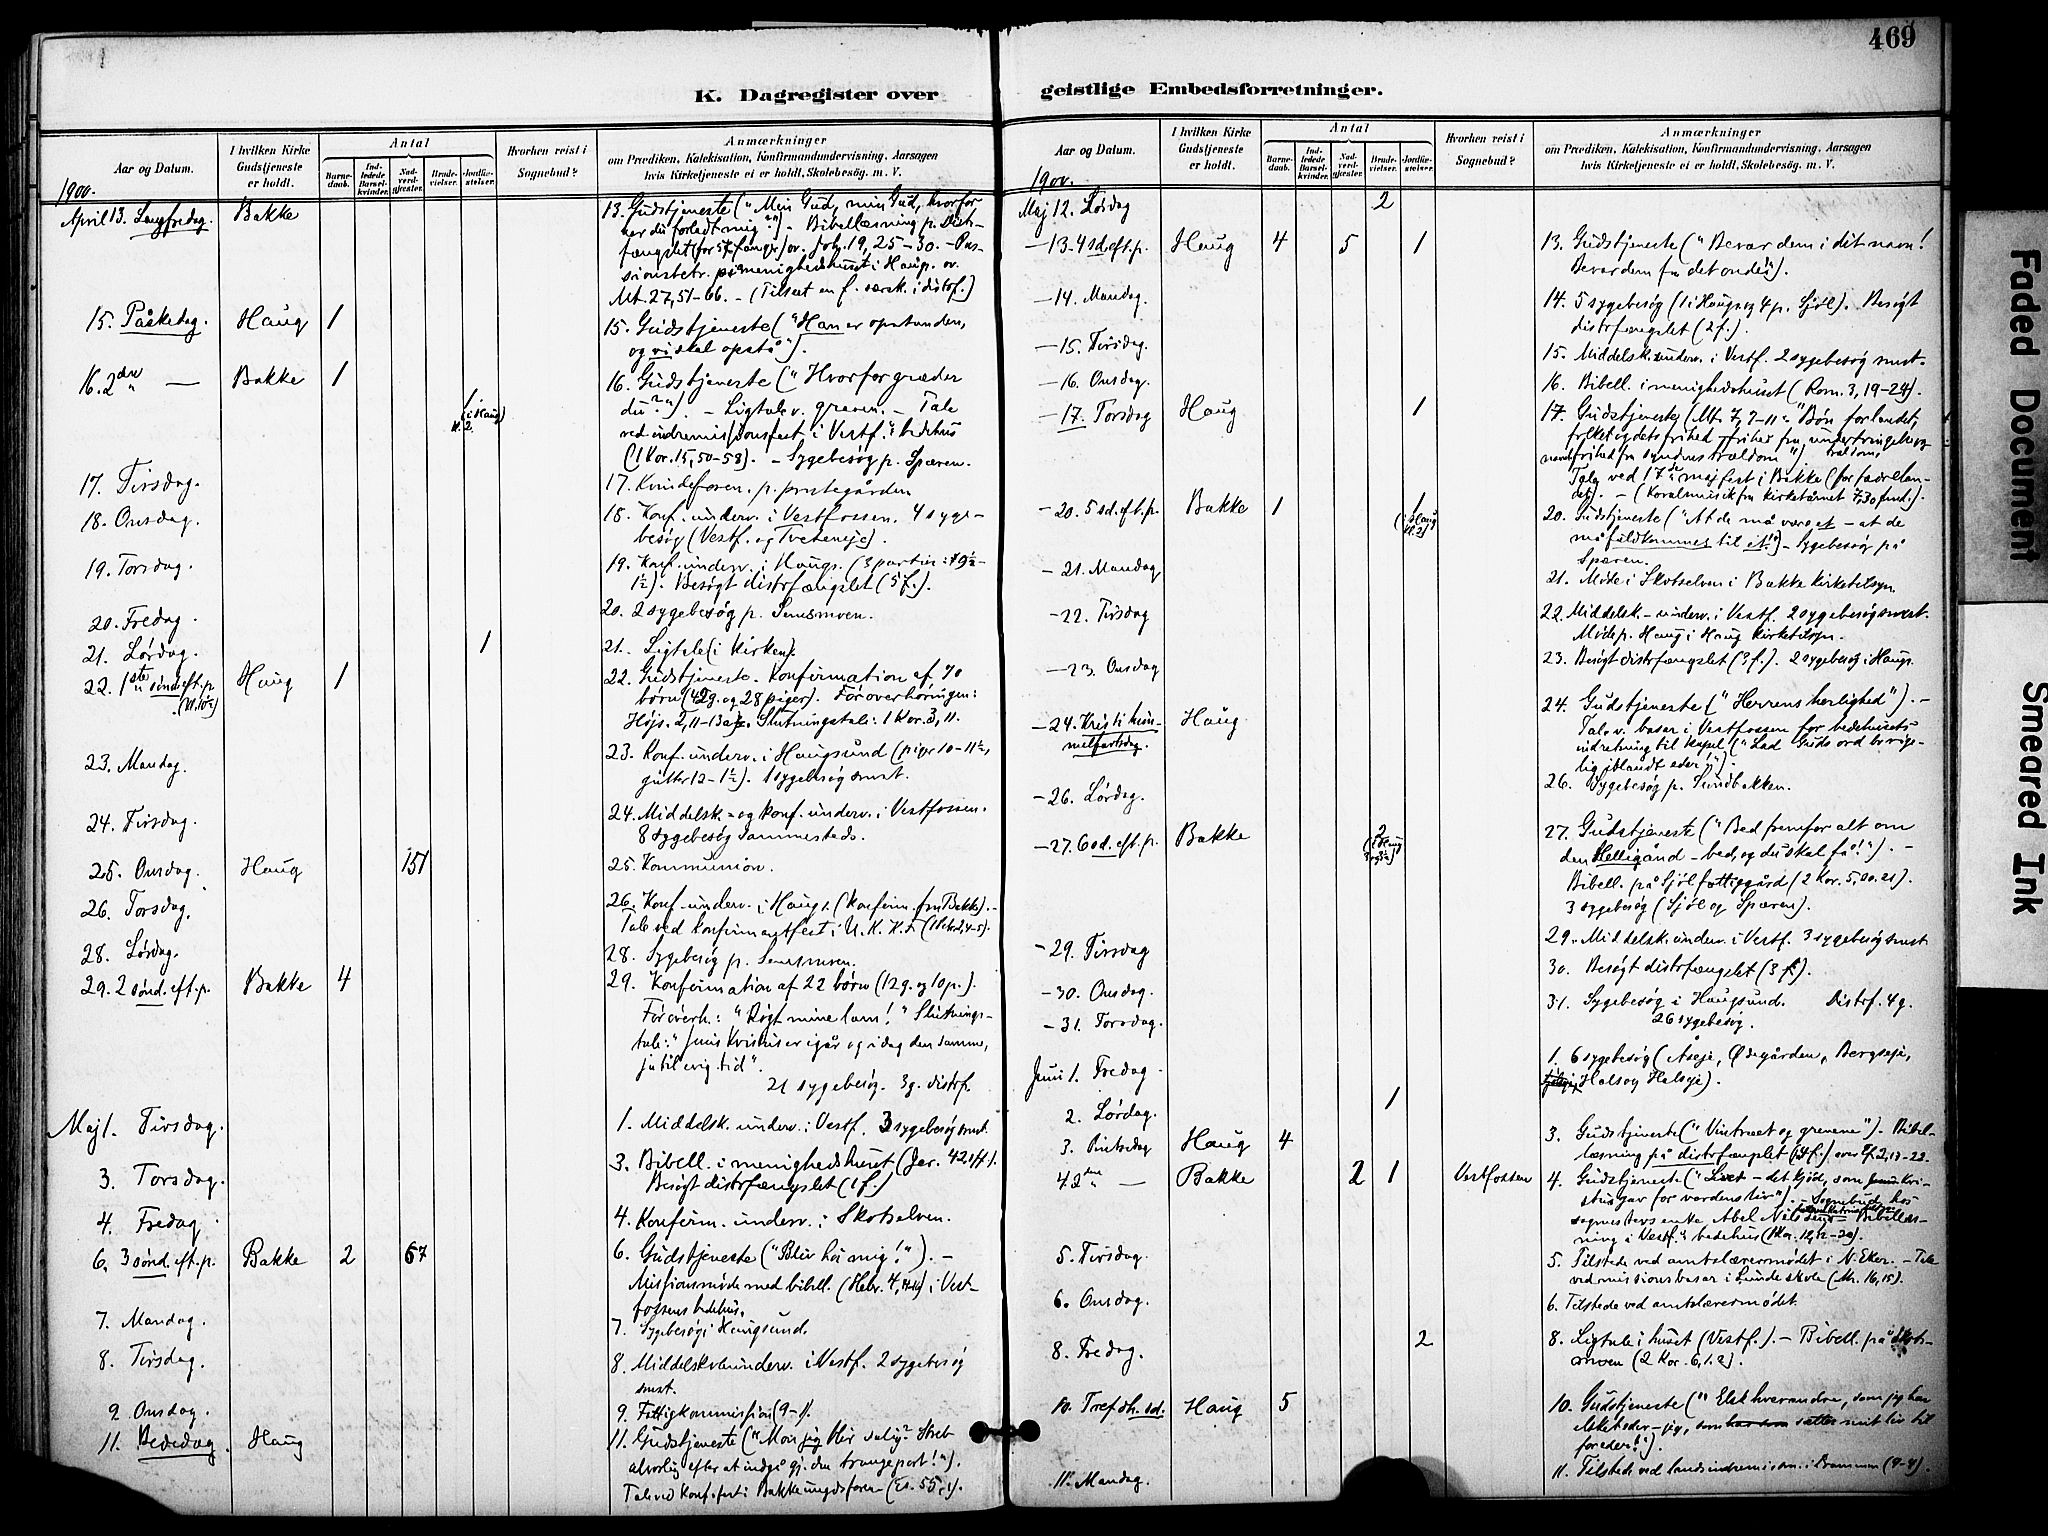 469
K. Dagregister over geistlige Embedsforretninger.
Aar og Datum.
I hvilken Kirke Gudstjeneste er holdt.
Antal
Barnedaab.
Indledede Barselkvinder.
Nadverdgjester.
Brudevielser.
Jordfæstelser.
Hvorhen reist i Sognebud?
Anmærkninger
om Prædiken, Katekisation, Konfirmandundervisning, Aarsagen
hvis Kirketjeneste ei er holdt, Skolebesøg. m. V.
1900.
April 13. Langfredag. Bakke 13. Gudstjeneste ("Min Gud, min Gud, hvorfor
har du forladt mig?") - Bibellæsning p. Distr-
fængslet (for 5 fanger) ov. Joh. 19, 25-30. - Pas-
sionsbetr. på menighedshuset i Haugs. ov.
Mt. 27, 51-66. - (Tilsat en f. særsk. i distrf.)
15. Påskedag. Haug 1 15. Gudstjeneste ("Han er opstanden,
og vi skal opstå").
16. 2den " — Bakke 1 1 (i Haug) 16. Gudstjeneste ("Hvorfor græder
du?"). - Ligtale v. graven. - Tale
ved indremissionsfest i Vestf.s bedehus
(1 Kor. 15, 50-58). - Sygebesøg p. Spæren.
17. Tirsdag. 17. Kvindeforen. p. prestegården
18. Onsdag. 18. Konf. underv. i Vestfossen. 4 syge-
besøg (Vestf. og Tveteneje).
19. Torsdag. 19. Konf. underv. i Haugs. (3 partier: 9½-
1½). Besøgt distrfængslet (5 f.).
20. Fredag. 20. 2 sygebesøg p. Semsmoen.
21. Lørdag. 1 21. Ligtale (i kirken).
22. 1ste sønd. eft. p. Haug 1 22. Gudstjeneste. Konfirmation af 70
børn (42 g. og 28 piger). Før overhøringen:
Højs. 2, 11-13a. Slutningstale: 1 Kor. 3, 11.
23. Mandag. 23. Konf. underv. i Haugsund (piger 10-11½,
gutter 12-1½). 1 sygebesøg smst.
24. Tirsdag. 24. Middelsk.- og konf. underv. i Vestfossen.
8 sygebesøg sammesteds.
25. Onsdag. Haug 151 25. Kommunion.
26. Torsdag. 26. Konf. underv. i Haugs. (konfirm. fra Bakke). -
Tale ved konfirmantfest i U. K. K. F.
28. Lørdag. 28. Sygebesøg p. Semsmoen.
29. 2 sønd. eft. p. Bakke 4 29. Konfirmation af 22 børn (12 g. og 10 p.).
Før overh.: "Røgt mine lam!" Slutnings-
tale: "Jesus Kristus er igår og idag den samme,
ja til evig tid".
21 sygebesøg. 3 g. distrf.
Maj 1. Tirsdag. 1. Middelsk. underv. i Vestf. 3 sygebesøg smst.
3. Torsdag. 3. Bibell. i menighedshuset (Jer. 42, 1ff).
Besøgt distrfængslet (1 f.)
4. Fredag. 4. Konfirm. underv. i Skotselven.
6. 3 sønd. eft. p. Bakke 2 67 6. Gudstjeneste ("Bliv hos mig!"). -
Missionsmøde med bibell. (Hebr. 4, 14-16) i Vest-
fossens bedehus.
7. Mandag. 7. Sygebesøg i Haugsund.
8. Tirsdag. 8. Middelskoleunderv. i Vestf. 2 sygebesøg
smst.
9. Onsdag. 9. Fattigkommission (9-1).
11. Bededag. Haug 11. Gudstjeneste ("Mon jeg blir salig? Stræb
alvorlig efter at indgå gj. den trange port!").
Tale ved konf. fest i Bakke ungdsforen. (Es. 55, 1).
1900.
Maj 12. Lørdag 2
—13. 4 sd. eft. p. Haug 4 5 1 13. Gudstjeneste ("Bevar dem i dit navn!
Bevar dem fra det onde!").
—14. Mandag. 14. 5 sygebesøg (1 i Haugs. og 4 p. Sjøl). Besøgt
distrfængslet (2 f.).
—15. Tirsdag. 15. Middelsk. underv. i Vestf. 2 sygebesøg smst.
—16. Onsdag. 16. Bibell. i menighedshuset (Rom. 3, 19-24).
—17. Torsdag Haug 1 17. Gudstjeneste (Mt. 7, 7-11: "Bøn for landet,
folket og dets frihed - frihed fra undertvingelsens
trældom, navnl. frihed fra syndens trældom")
Tale ved 17de majfest i Bakke (for fædrelan-
det). - (Koralmusik fra kirketårnet 7 30 fmd.).
—20. 5 sd. eft. p. Bakke 1 1 (i Haug) 20. Gudstjeneste ("At de må være et - at de
må fuldkommes til et!") - Sygebesøg på
Spæren.
—21. Mandag 21. Møde i Skotselven i Bakke kirketilsyn.
—22. Tirsdag 22. Middelsk. underv. i Vestf. 2 sygebesøg smst.
Møde p. Haug i Haug kirketilsyn.
—23. Onsdag 23. Besøgt distrfængslet (3 f.). 2 sygebesøg i Haugs.
—24. Kristi him-
melfartsdag. Haug. 24. Gudstjeneste ("Herrens herlighed"). -
Tale v. basar i Vestfossen for bedehusets
indretning til kapel ("Lad Guds ord bo rige-
lig iblandt eder!").
—26. Lørdag. 26. Sygebesøg p. Sundbakken.
—27. 6 sd. eft. p. Bakke 2 (i Haug) 27. Gudstjeneste ("Bed fremfor alt om
den Helligånd - bed, og du skal få!"). -
Bibell. på Sjøl fattiggård (2 Kor. 5, 20. 21).
3 sygebesøg (Sjøl og Spæren).
—29. Tirsdag 29. Middelsk. underv. i Vestf. 3 sygebesøg smst.
—30. Onsdag. 30. Besøgt distrfængslet (3 f.).
—31. Torsdag. 31. Sygebesøg i Haugsund. Distrf. 4 g.
26 sygebesøg.
Juni 1. Fredag. 1. 6 sygebesøg (Åseje, Ødegården, Bergseje,
Hals og Halseje).
2. Lørdag. 1
3. Pintsedag Haug 4 3. Gudstjeneste ("Vintræet og grenene"). - Bibel-
læsning på distrfængslet over Ef. 2, 13-22.
4. 2den " — Bakke 2 1 Vestfossen 4. Gudstjeneste ("Livet - det kjød, som Kri-
stus gav for verdens liv"). - Sognebud hos
sognestyrs enke Abel Nilsen - Bibellæs-
ning i Vestf.s bedehus
5. Tirsdag. 5. Tilstede ved amtslærermødet i N. Eker. - Tale
ved missionsbasar i Lunde skole (Mr. 16, 15).
6. Onsdag. 6. Tilstede ved amtslærermødet.
8. Fredag. 2 8. Ligtale i huset (Vestf.). - Bibell. på
moen (2 Kor. 6, 1. 2).
10. Trefdh. sd. Haug 5 10. Gudstjeneste ("Elsk hverandre, som jeg har
elsket eder - jeg, som satte mit liv til
for eder!").
11. Mandag. 11. Tilstede ved landsindremism. i Drammen (9-4).
Faded Document
Smeared Ink